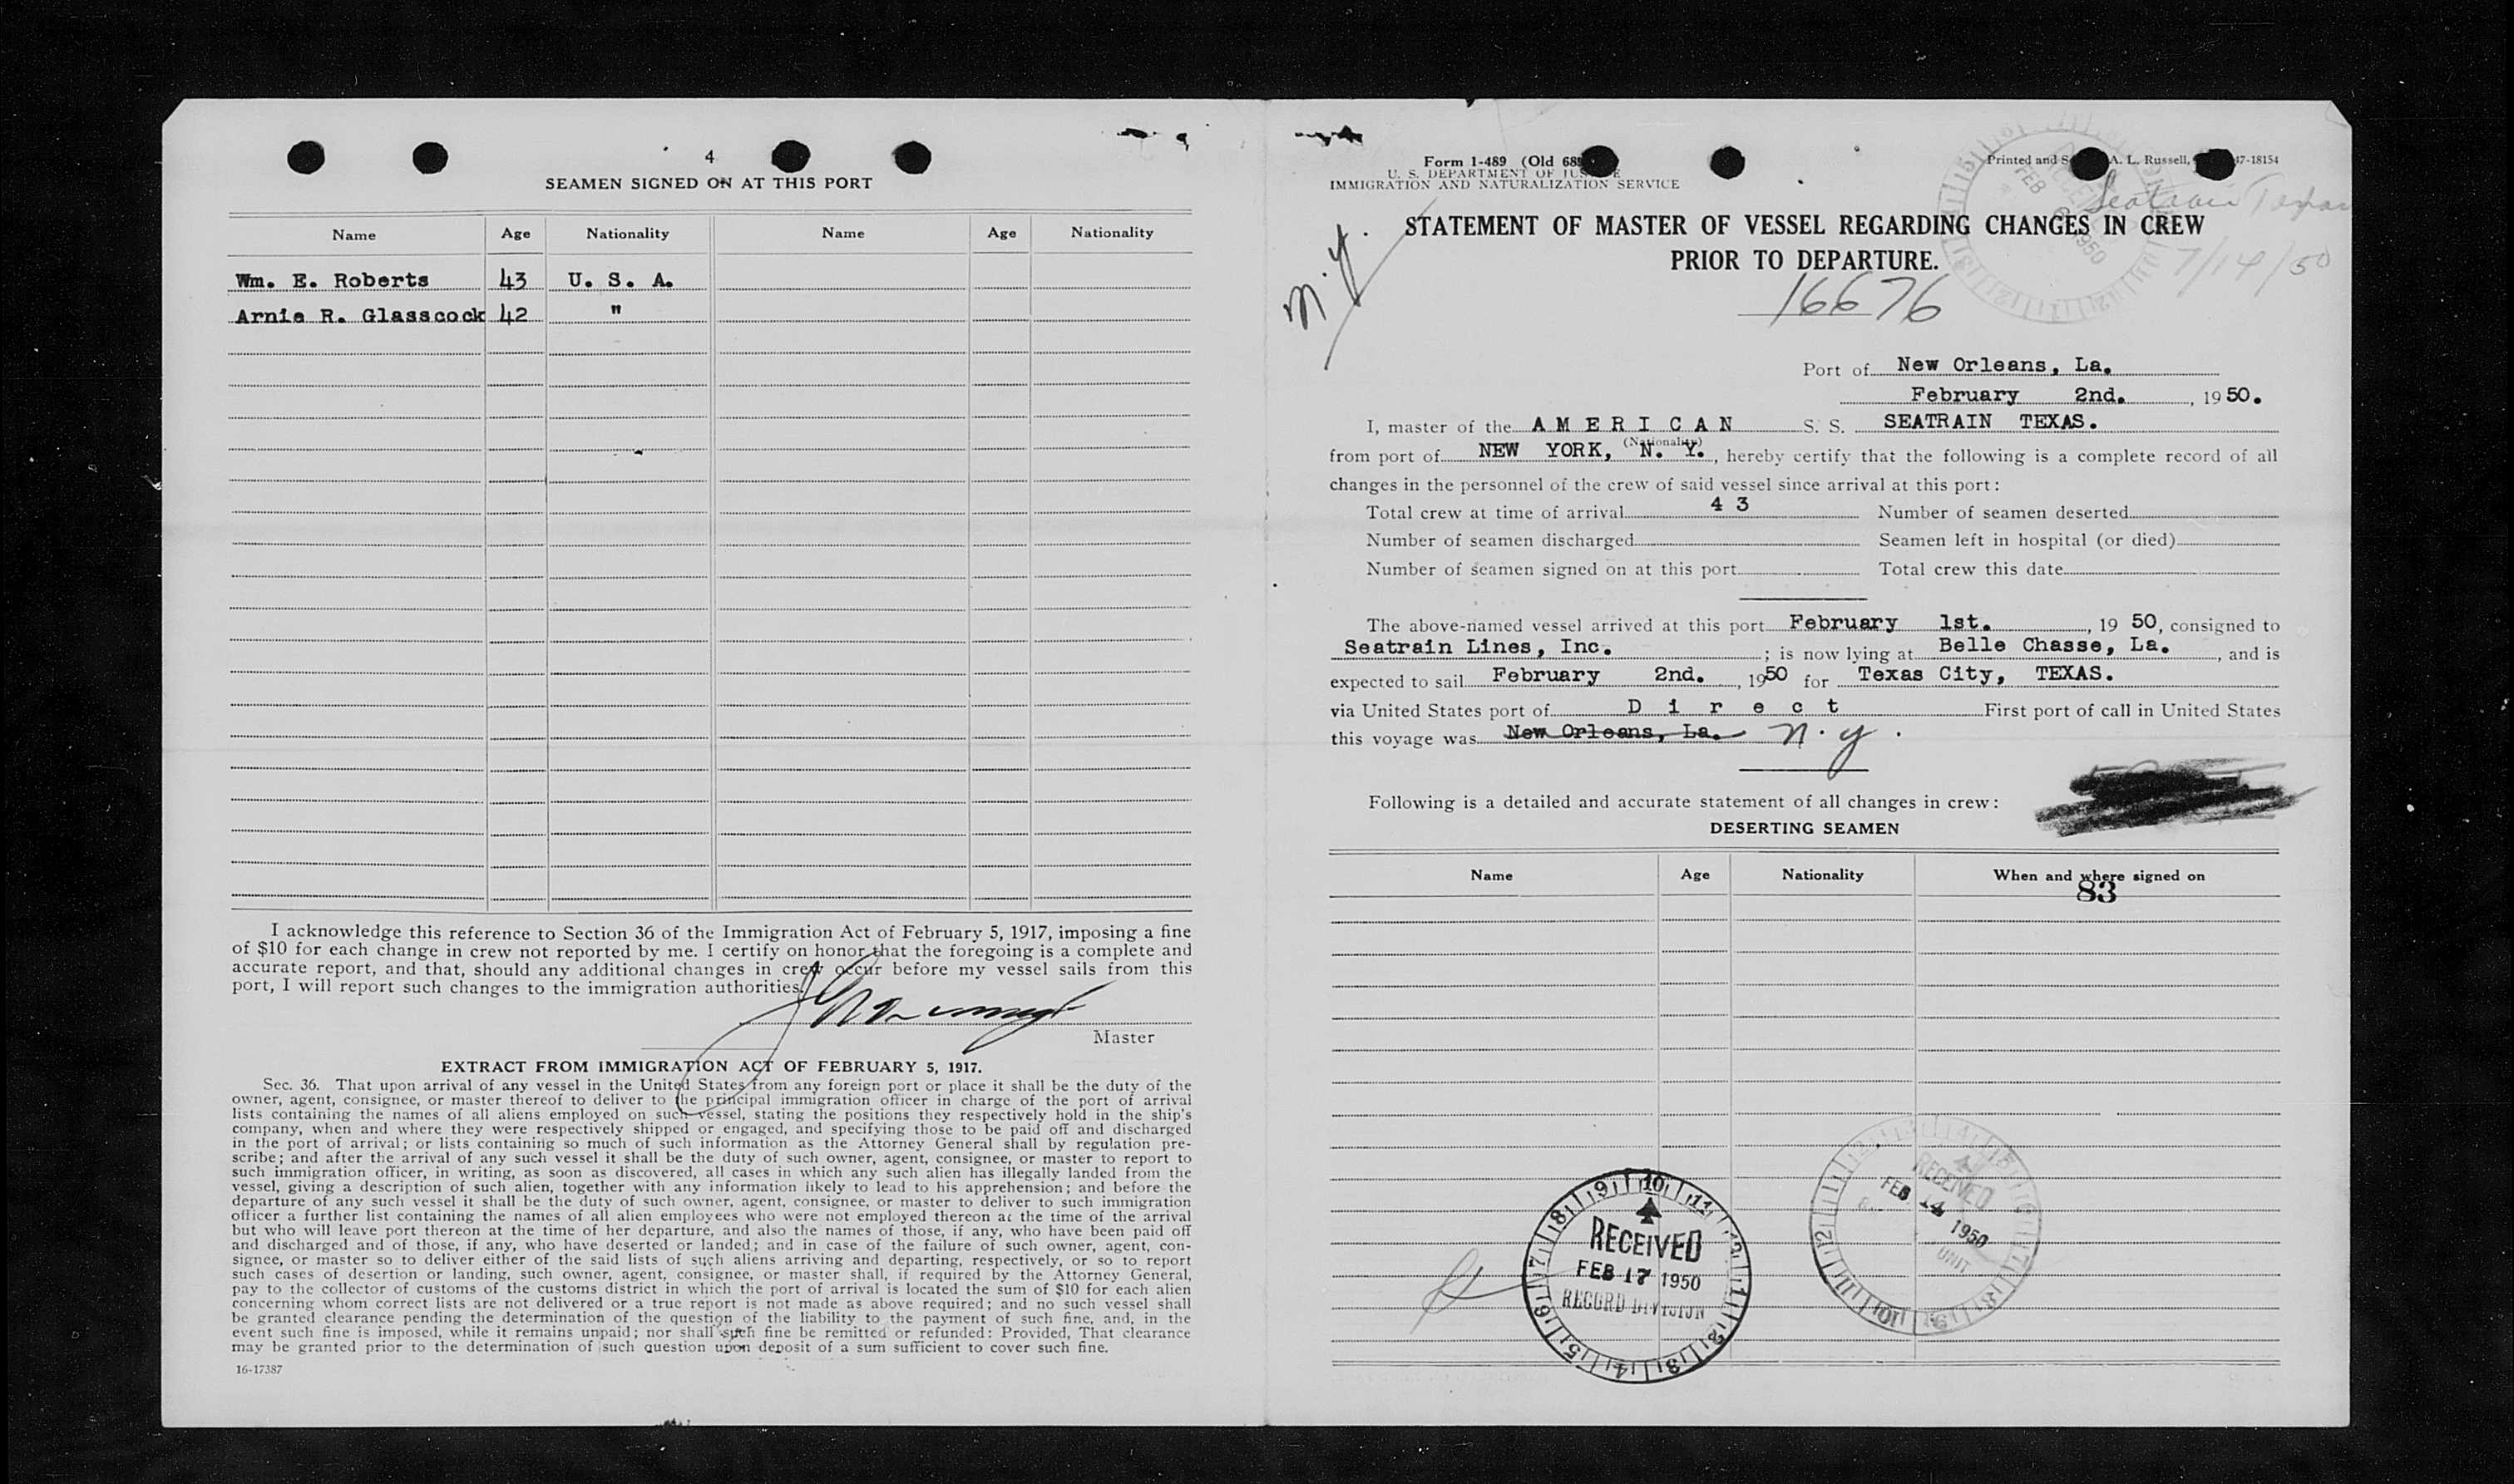 4
SEAMEN SIGNED ON AT THIS PORT
Name Age Nationality Name Age Nationality
Wm. E. Roberts 43 U. S. A.
Arnie R. Glasscock 42 "
I acknowledge this reference to Section 36 of the Immigration Act of February 5, 1917, imposing a fine
of $10 for each change in crew not reported by me. I certify on honor that the foregoing is a complete and
accurate report, and that, should any additional changes in crew occur before my vessel sails from this
port, I will report such changes to the immigration authorities.
Master
EXTRACT FROM IMMIGRATION ACT OF FEBRUARY 5, 1917.
Sec. 36. That upon arrival of any vessel in the United States from any foreign port or place it shall be the duty of the
owner, agent, consignee, or master thereof to deliver to the principal immigration officer in charge of the port of arrival
lists containing the names of all aliens employed on such vessel, stating the positions they respectively hold in the ship's
company, when and where they were respectively shipped or engaged, and specifying those to be paid off and discharged
in the port of arrival; or lists containing so much of such information as the Attorney General shall by regulation pre-
scribe; and after the arrival of any such vessel it shall be the duty of such owner, agent, consignee, or master to report to
such immigration officer, in writing, as soon as discovered, all cases in which any such alien has illegally landed from the
vessel, giving a description of such alien, together with any information likely to lead to his apprehension; and before the
departure of any such vessel it shall be the duty of such owner, agent, consignee, or master to deliver to such immigration
officer a further list containing the names of all alien employees who were not employed thereon at the time of the arrival
but who will leave port thereon at the time of her departure, and also the names of those, if any, who have been paid off
and discharged and of those, if any, who have deserted or landed; and in case of the failure of such owner, agent, con-
signee, or master so to deliver either of the said lists of such aliens arriving and departing, respectively, or so to report
such cases of desertion or landing, such owner, agent, consignee, or master shall, if required by the Attorney General,
pay to the collector of customs of the customs district in which the port of arrival is located the sum of $10 for each alien
concerning whom correct lists are not delivered or a true report is not made as above required; and no such vessel shall
be granted clearance pending the determination of the question of the liability to the payment of such fine, and, in the
event such fine is imposed, while it remains unpaid; nor shall such fine be remitted or refunded: Provided, That clearance
may be granted prior to the determination of such question upon deposit of a sum sufficient to cover such fine.
16-17387
Form 1-489 (Old 68
U. S. DEPARTMENT OF JUSTICE
IMMIGRATION AND NATURALIZATION SERVICE
Printed and S A. L. Russell, 47-18154
Seatrain Texas
7/14/50
RECEIVED
FEB 6 1950
N.Y.
STATEMENT OF MASTER OF VESSEL REGARDING CHANGES IN CREW
PRIOR TO DEPARTURE.
16676
Port of New Orleans, La.
February 2nd. , 19 50.
I, master of the A M E R I C A N S. S. SEATRAIN TEXAS.
(Nationality)
from port of NEW YORK, N. Y. , hereby certify that the following is a complete record of all
changes in the personnel of the crew of said vessel since arrival at this port:
Total crew at time of arrival 4 3 Number of seamen deserted
Number of seamen discharged Seamen left in hospital (or died)
Number of seamen signed on at this port Total crew this date
The above-named vessel arrived at this port February 1st. , 19 50, consigned to
Seatrain Lines, Inc. ; is now lying at Belle Chasse, La. , and is
expected to sail February 2nd. , 1950 for Texas City, TEXAS.
via United States port of D i r e c t First port of call in United States
this voyage was New Orleans, La. N.Y.
Following is a detailed and accurate statement of all changes in crew:
DESERTING SEAMEN
Name Age Nationality When and where signed on
83
RECEIVED
FEB 17 1950
RECORD DIVISION
RECEIVED
FEB 14 1950
UNIT